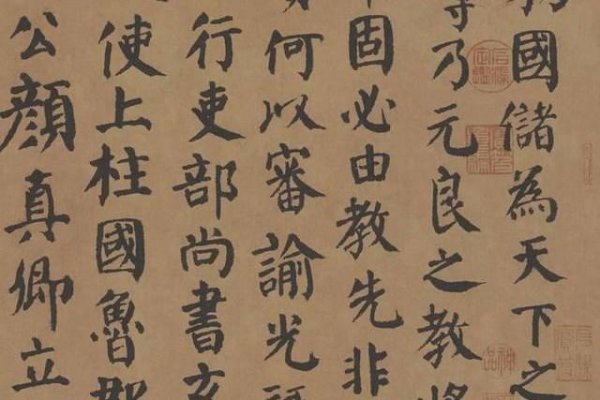 國儲為天下之
乃元良之教將
固必由教先非
何以審諭光
行吏部尚書充
使上柱國魯郡
公顏真卿立
神品